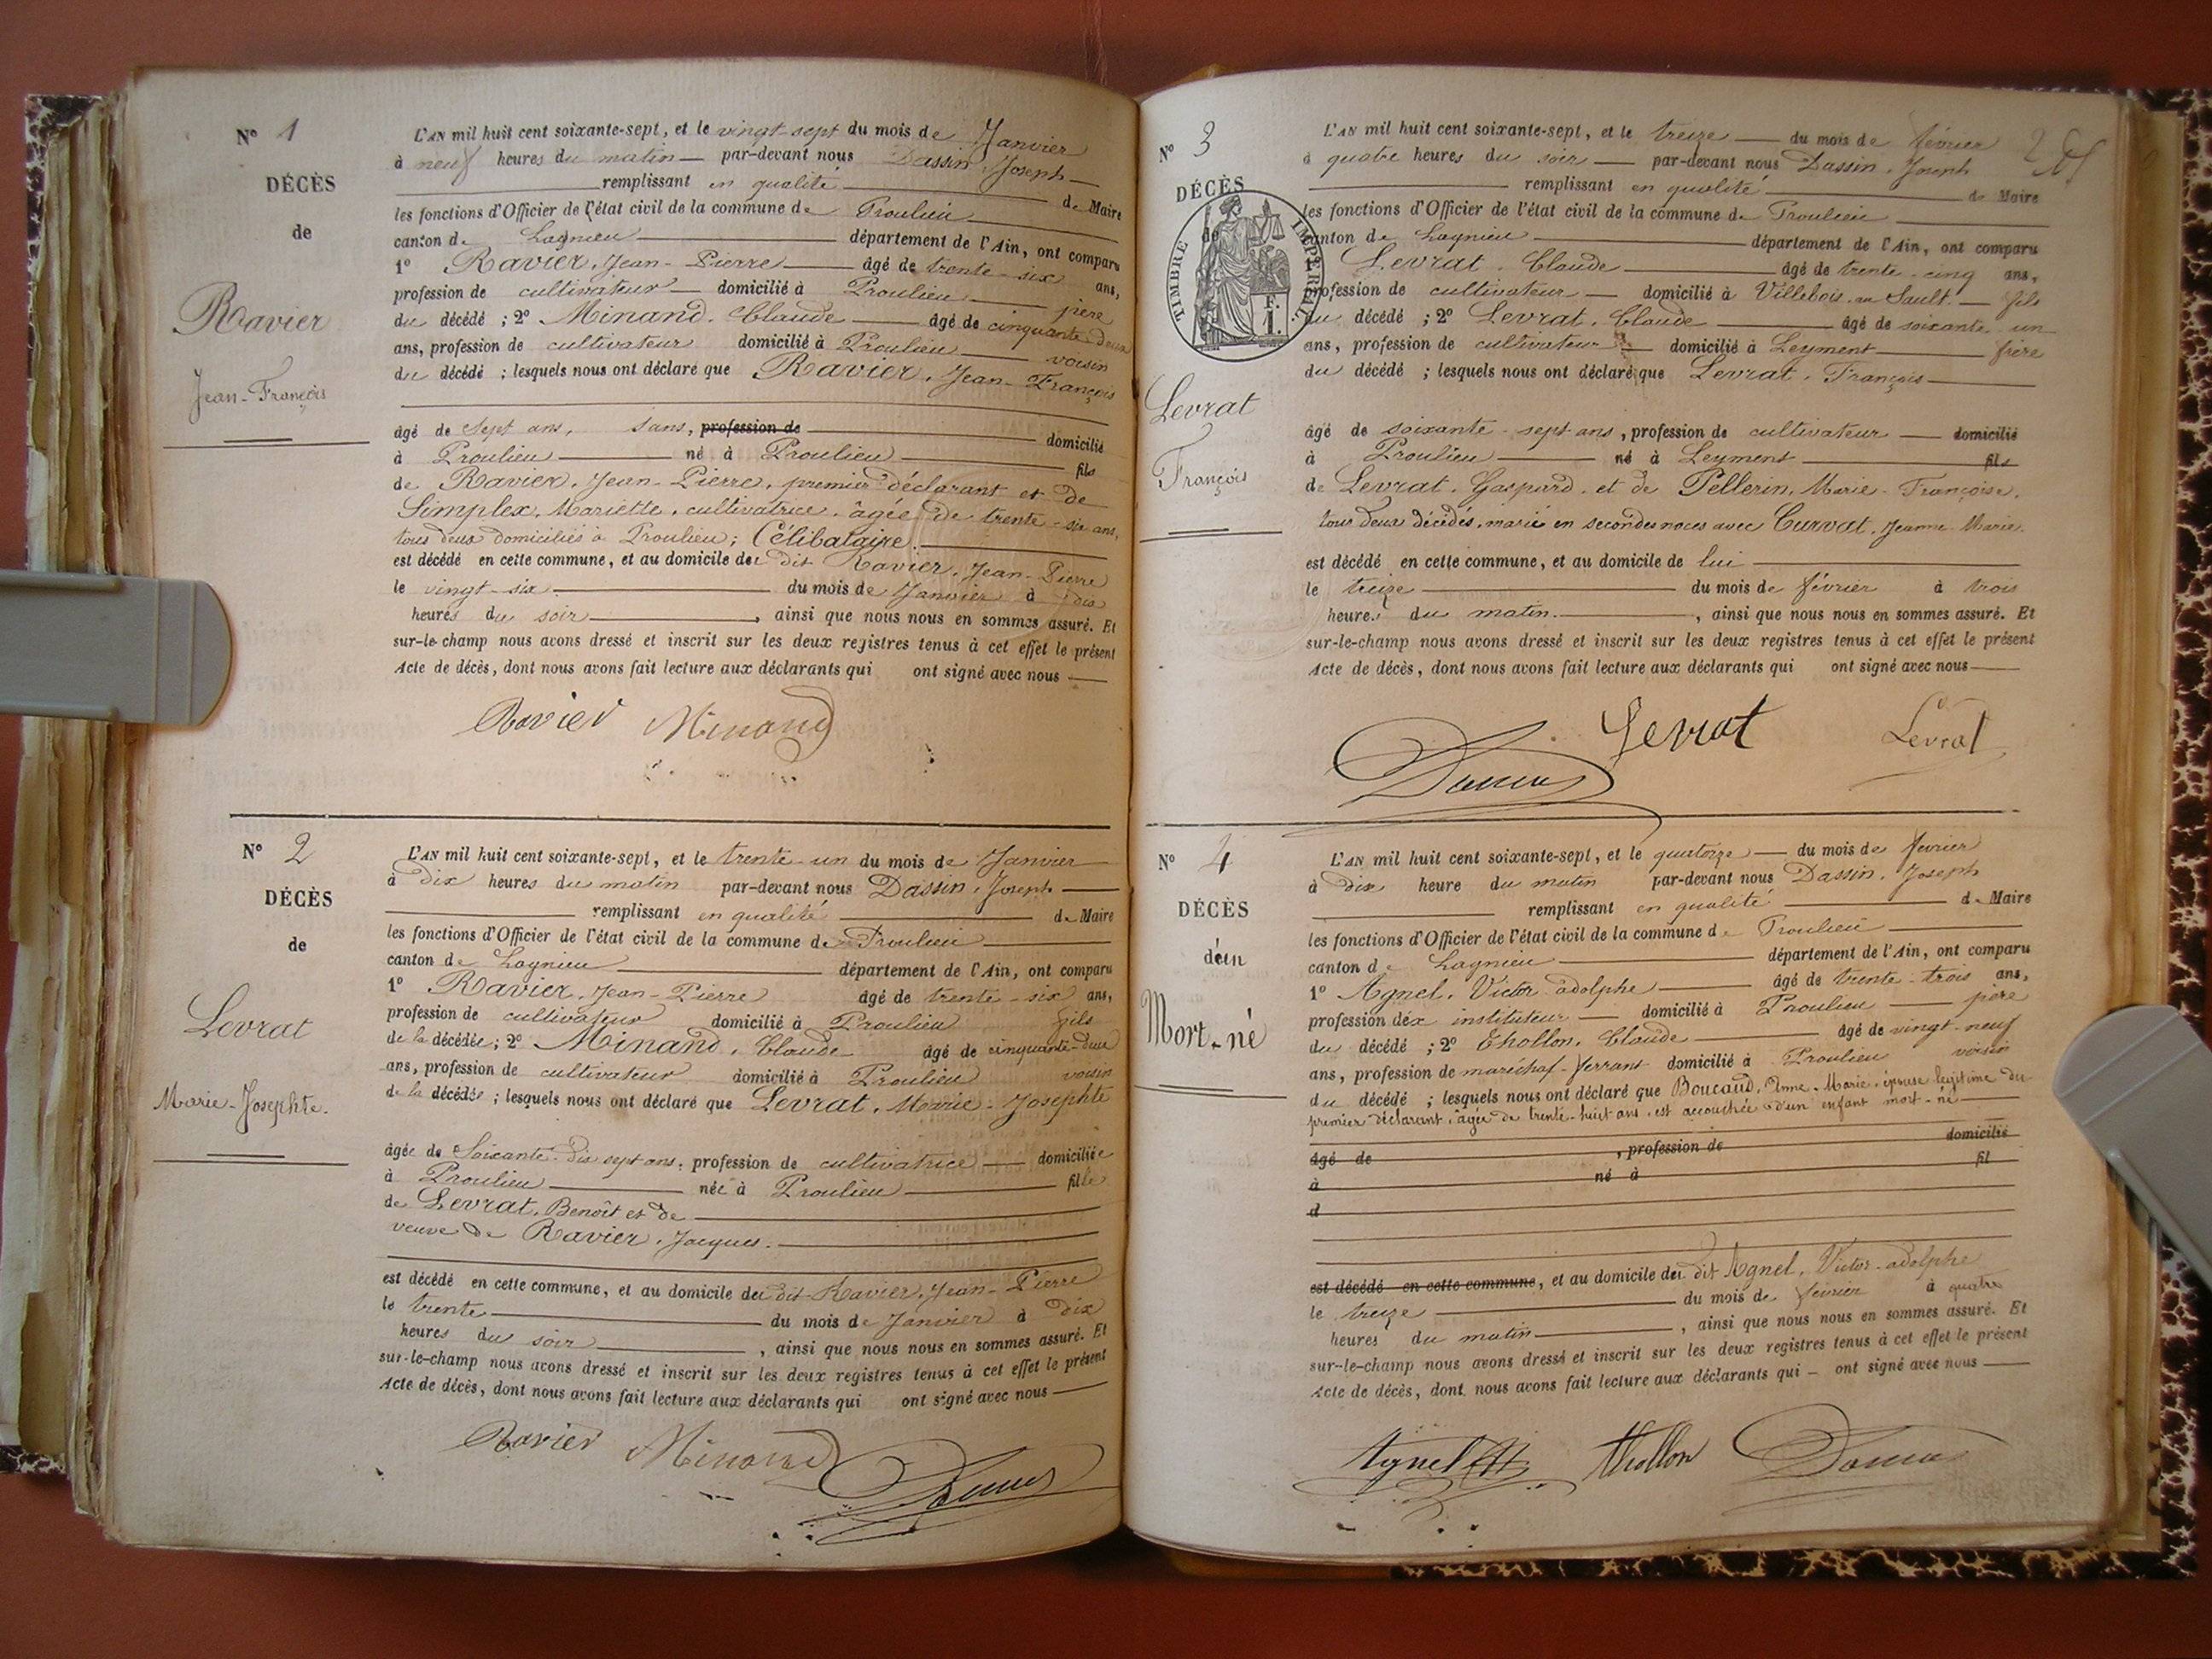 N° 1
DÉCÈS
de
Ravier
Jean-François
L'AN mil huit cent soixante-sept, et le vingt-sept du mois de Janvier
à neuf heures du matin — par-devant nous Dassin, Joseph —
remplissant en qualité de Maire
les fonctions d'Officier de l'état civil de la commune de Proulieu
canton de Lagnieu département de l'Ain, ont comparu
1° Ravier, Jean-Pierre — âgé de trente-six ans,
profession de cultivateur — domicilié à Proulieu — père
du décédé ; 2° Minand, Claude — âgé de cinquante-deux
ans, profession de cultivateur domicilié à Proulieu — voisin
du décédé ; lesquels nous ont déclaré que Ravier, Jean-François
âgé de Sept ans, sans, profession de domicilié
à Proulieu — né à Proulieu — fils
de Ravier, Jean-Pierre, premier déclarant et de
Simplex, Mariette, cultivatrice, âgée de trente-six ans,
tous deux domiciliés à Proulieu ; Célibataire.
est décédé en cette commune, et au domicile du dit Ravier, Jean-Pierre
le vingt-six du mois de Janvier à dix
heures du soir, ainsi que nous nous en sommes assuré. Et
sur-le-champ nous avons dressé et inscrit sur les deux registres tenus à cet effet le présent
Acte de décès, dont nous avons fait lecture aux déclarants qui ont signé avec nous —
Ravier Minand
N° 2
DÉCÈS
de
Levrat
Marie-Josephte.
L'AN mil huit cent soixante-sept, et le trente-un du mois de Janvier
à dix heures du matin par-devant nous Dassin, Joseph —
remplissant en qualité de Maire
les fonctions d'Officier de l'état civil de la commune de Proulieu
canton de Lagnieu département de l'Ain, ont comparu
1° Ravier, Jean-Pierre âgé de trente-six ans,
profession de cultivateur domicilié à Proulieu fils
de la décédée ; 2° Minand, Claude âgé de cinquante-deux
ans, profession de cultivateur domicilié à Proulieu voisin
de la décédée ; lesquels nous ont déclaré que Levrat, Marie-Josephte
âgée de Soixante-dix sept ans, profession de cultivatrice — domiciliée
à Proulieu — née à Proulieu — fille
de Levrat, Benoît et de
veuve de Ravier, Jacques.
est décédé en cette commune, et au domicile du dit Ravier, Jean-Pierre
le trente du mois de Janvier à dix
heures du soir, ainsi que nous nous en sommes assuré. Et
sur-le-champ nous avons dressé et inscrit sur les deux registres tenus à cet effet le présent
Acte de décès, dont nous avons fait lecture aux déclarants qui ont signé avec nous —
Ravier Minand Dassin
N° 3
DÉCÈS
de
TIMBRE IMPÉRIAL
F. 1.
Levrat
François
L'AN mil huit cent soixante-sept, et le treize — du mois de février
à quatre heures du soir — par-devant nous Dassin, Joseph
remplissant en qualité de Maire
les fonctions d'Officier de l'état civil de la commune de Proulieu
canton de Lagnieu département de l'Ain, ont comparu
Levrat, Claude — âgé de trente-cinq ans,
profession de cultivateur — domicilié à Villebois, au Sault — fils
du décédé ; 2° Levrat, Claude — âgé de soixante-un
ans, profession de cultivateur — domicilié à Leyment — frère
du décédé ; lesquels nous ont déclaré que Levrat, François —
âgé de soixante-sept ans, profession de cultivateur — domicilié
à Proulieu — né à Leyment — fils
de Levrat, Gaspard, et de Pellerin, Marie-Françoise,
tous deux décédés, marié en secondes noces avec Curvat, Jeanne-Marie.
est décédé en cette commune, et au domicile de lui
le treize du mois de février à trois
heures du matin., ainsi que nous nous en sommes assuré. Et
sur-le-champ nous avons dressé et inscrit sur les deux registres tenus à cet effet le présent
Acte de décès, dont nous avons fait lecture aux déclarants qui ont signé avec nous —
Dassin Levrat Levrat
N° 4
DÉCÈS
d'un
Mort-né
L'AN mil huit cent soixante-sept, et le quatorze — du mois de février
à dix heure du matin par-devant nous Dassin, Joseph
remplissant en qualité de Maire
les fonctions d'Officier de l'état civil de la commune de Proulieu
canton de Lagnieu département de l'Ain, ont comparu
1° Agnel, Victor-adolphe — âgé de trente-trois ans,
profession d'ex instituteur — domicilié à Proulieu — père
du décédé ; 2° Thollon, Claude — âgé de vingt-neuf
ans, profession de maréchal-ferrant domicilié à Proulieu voisin
du décédé ; lesquels nous ont déclaré que Boucaud, Anne-Marie, épouse légitime du
premier déclarant, âgée de trente-huit ans, est accouchée d'un enfant mort-né
âgé de , profession de domicilié
à né à fil
d
est décédé en cette commune, et au domicile du dit Agnel, Victor-adolphe
le treize du mois de février à quatre
heures du matin, ainsi que nous nous en sommes assuré. Et
sur-le-champ nous avons dressé et inscrit sur les deux registres tenus à cet effet le présent
Acte de décès, dont nous avons fait lecture aux déclarants qui — ont signé avec nous —
Agnel Thollon Dassin